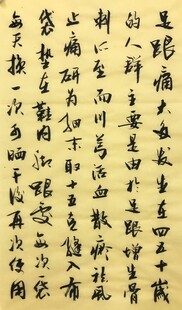 足跟痛大多发生在四五十岁
的人群主要是由於足跟增生骨
刺所至而川芎活血散瘀祛风
止痛研为细末取十五克缝入布
袋垫在鞋内脚跟处每次袋
每天换一次可晒干后再次使用